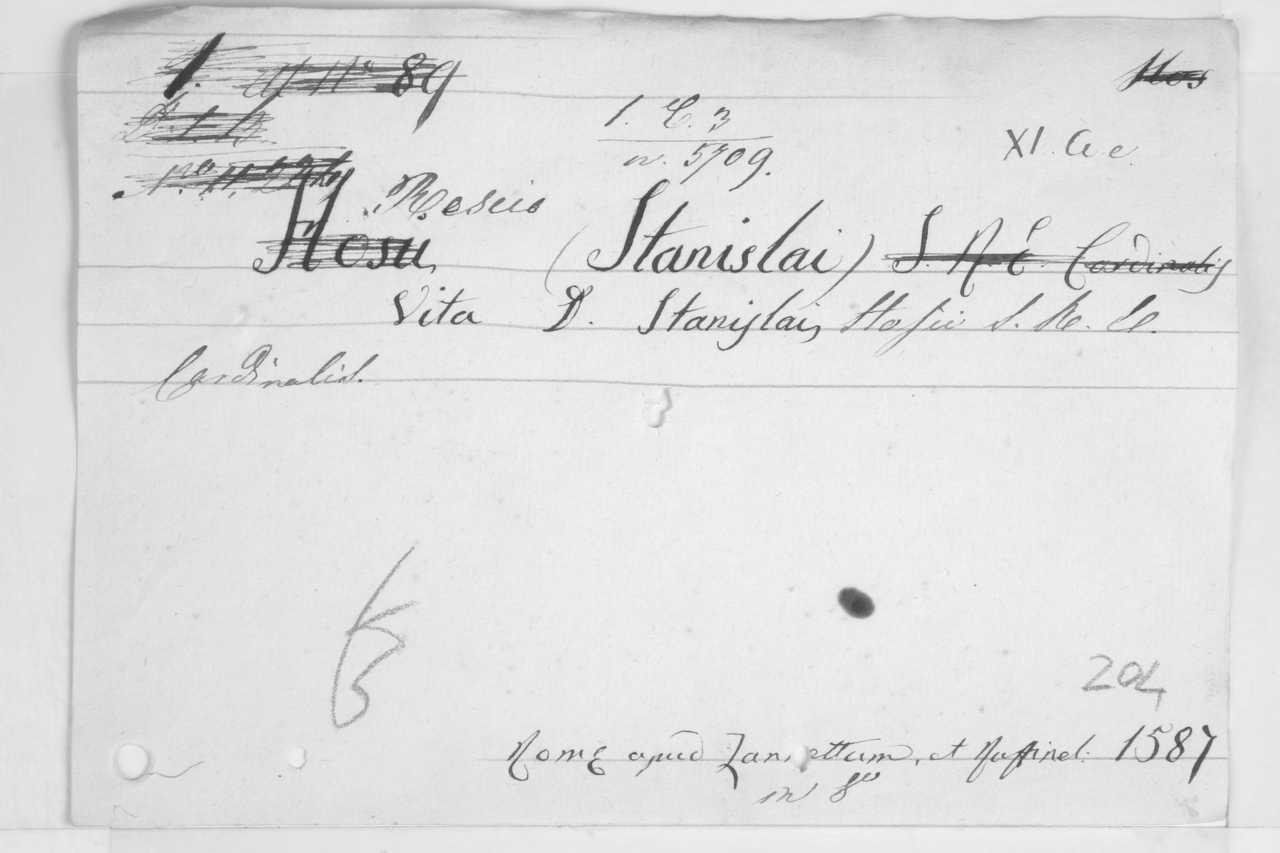 1. 89
Hos
I. C. 3
n. 5709.
XI. G. e.
Rescio
Hosii (Stanislai) S. R. E. Cardinalis
Vita D. Stanislai, Hosii S. R. E.
Cardinalis.
204
Rome apud Zannettum, et Ruffinel. 1587
in 8º